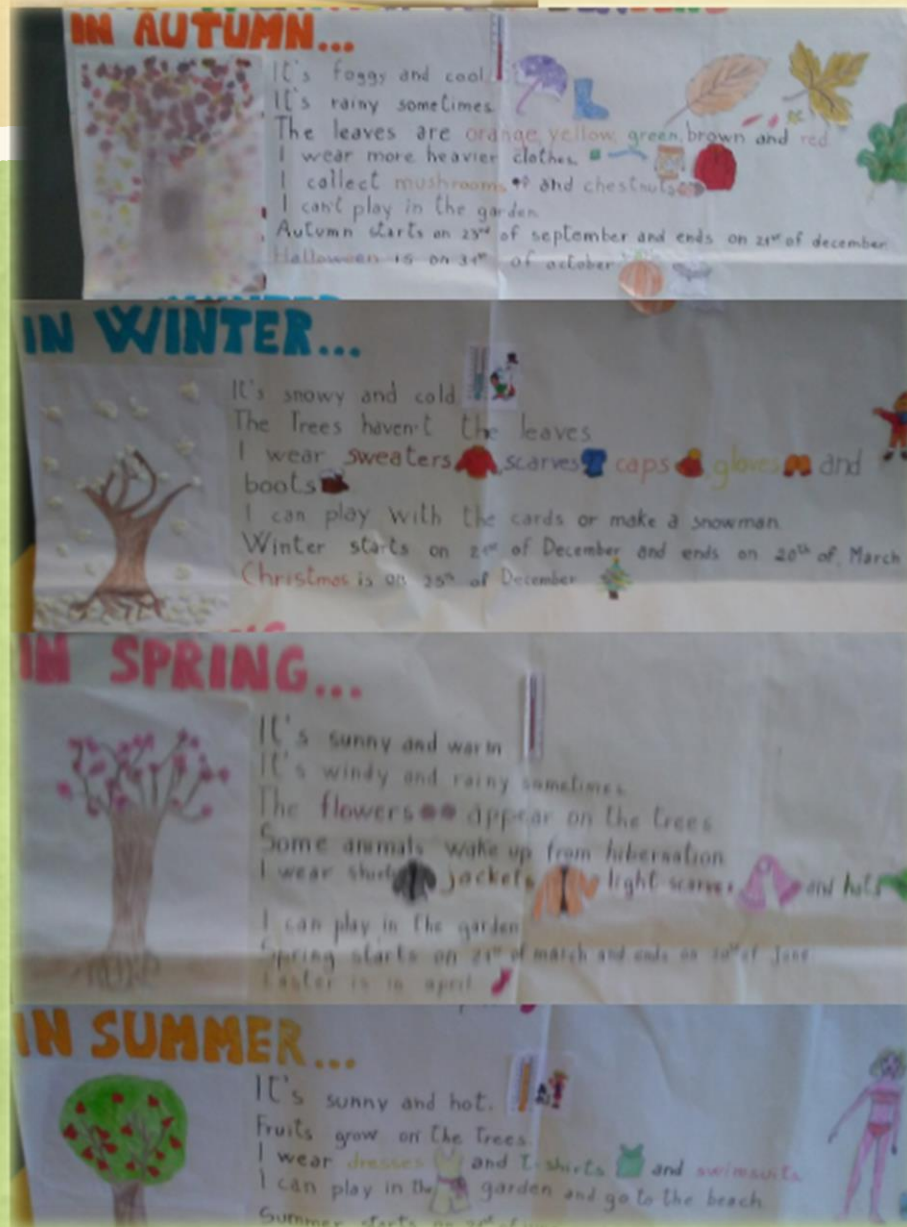 IN AUTUMN...
It's foggy and cool
It's rainy sometimes
The leaves are orange, yellow, green, brown and red
I wear more heavier clothes
I collect mushrooms and chestnuts
I can't play in the garden
Autumn starts on 23rd of september and ends on 21st of december
Halloween is on 31st of october
IN WINTER...
It's snowy and cold
The Trees haven't the leaves
I wear sweaters, scarves, caps, gloves and
boots
I can play with the cards or make a snowman
Winter starts on 21st of December and ends on 20th of March
Christmas is on 25th of December
IN SPRING...
It's sunny and warm
It's windy and rainy sometimes
The flowers appear on the trees
Some animals wake up from hibernation
I wear shirts jackets light scarves and hats
I can play in the garden
Spring starts on 21st of march and ends on 20th of June
Easter is in april
IN SUMMER...
It's sunny and hot.
Fruits grow on the Trees
I wear dresses and T-shirts and swimsuits
I can play in the garden and go to the beach
Summer starts on